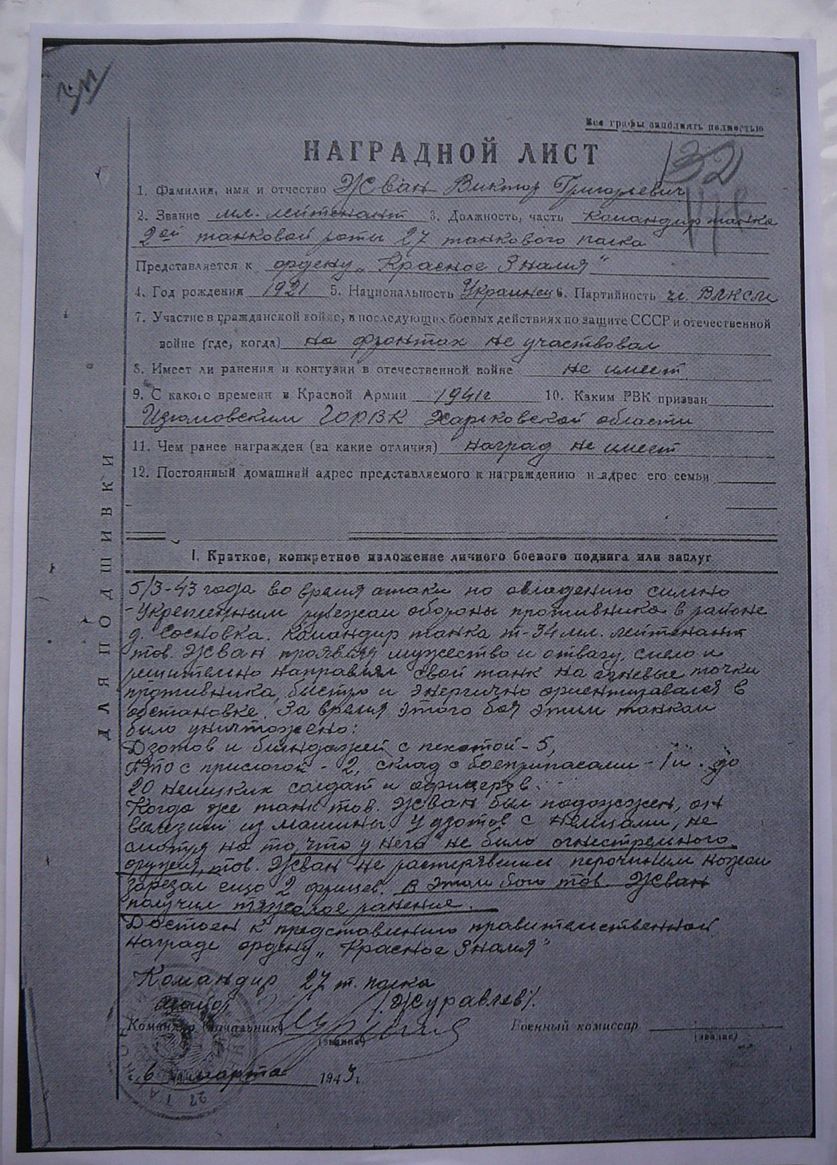 Все графы заполнять полностью
НАГРАДНОЙ ЛИСТ
1. Фамилия, имя и отчество Жван Виктор Григорьевич
2. Звание мл. лейтенант 3. Должность, часть Командир танка
2ой танковой роты 27 танкового полка
Представляется к ордену „Красное Знамя"
4. Год рождения 1921 5. Национальность Украинец 6. Партийность чл. ВЛКСМ
7. Участие в гражданской войне, в последующих боевых действиях по защите СССР и отечественной
войне (где, когда) на фронтах не участвовал
8. Имеет ли ранения и контузии в отечественной войне не имеет
9. С какого времени в Красной Армии 1941г 10. Каким РВК призван
Изюмовским ГОРВК Харьковской области
11. Чем ранее награжден (за какие отличия) наград не имеет
12. Постоянный домашний адрес представляемого к награждению и адрес его семьи
ДЛЯ ПОДШИВКИ
1. Краткое, конкретное изложение личного боевого подвига или заслуг
5/3-43 года во время атаки по овладению сильно
-укрепленным рубежом обороны противника в районе
д. Сосновка. Командир танка т-34 мл. лейтенант
тов. Жван проявил мужество и отвагу, смело и
решительно направлял свой танк на огневые точки
противника, быстро и энергично ориентировался в
обстановке. За время этого боя этим танком
было уничтожено:
Дзотов и блиндажей с пехотой - 5,
ПТО с прислугой - 2, склад с боеприпасами - 1 и до
20 немецких солдат и офицеров.
Когда же танк тов. Жван был подожжен, он
вылезший из машины у дзотов с немцами, не
смотря на то, что у него не было огнестрельного
оружия, тов. Жван не растерявшись перочинным ножом
зарезал еще 2 фрицев. В этом бою тов. Жван
получил тяжелое ранение.
Достоен к представлению правительственной
награде ордену „Красное Знамя"
Командир 27 т. полка
/Журавлев/.
Командир (начальник)
Военный комиссар
(звание)
(звание)
6 марта 1943г.